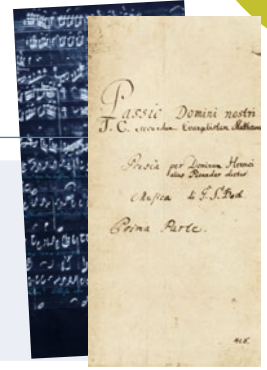 Passio Domini nostri
J. C. secundum Evangelistam Matthaeum
Poesia per Dominum Henrici
alias Picander dictus
Musica di G. S. Bach.
Prima Parte.